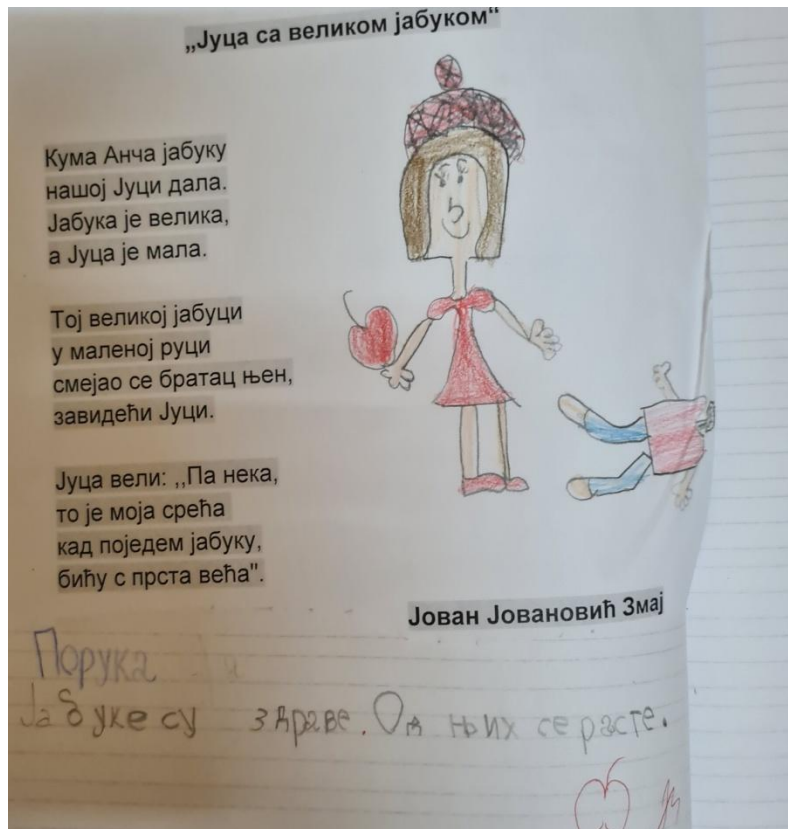 „Јуца са великом јабуком“
Кума Анча јабуку
нашој Јуци дала.
Јабука је велика,
а Јуца је мала.
Тој великој јабуци
у маленој руци
смејао се братац њен,
завидећи Јуци.
Јуца вели: ,,Па нека,
то је моја срећа
кад поједем јабуку,
бићу с прста већа".
Јован Јовановић Змај
Порука
Јабуке су здраве. Од њих се расте.